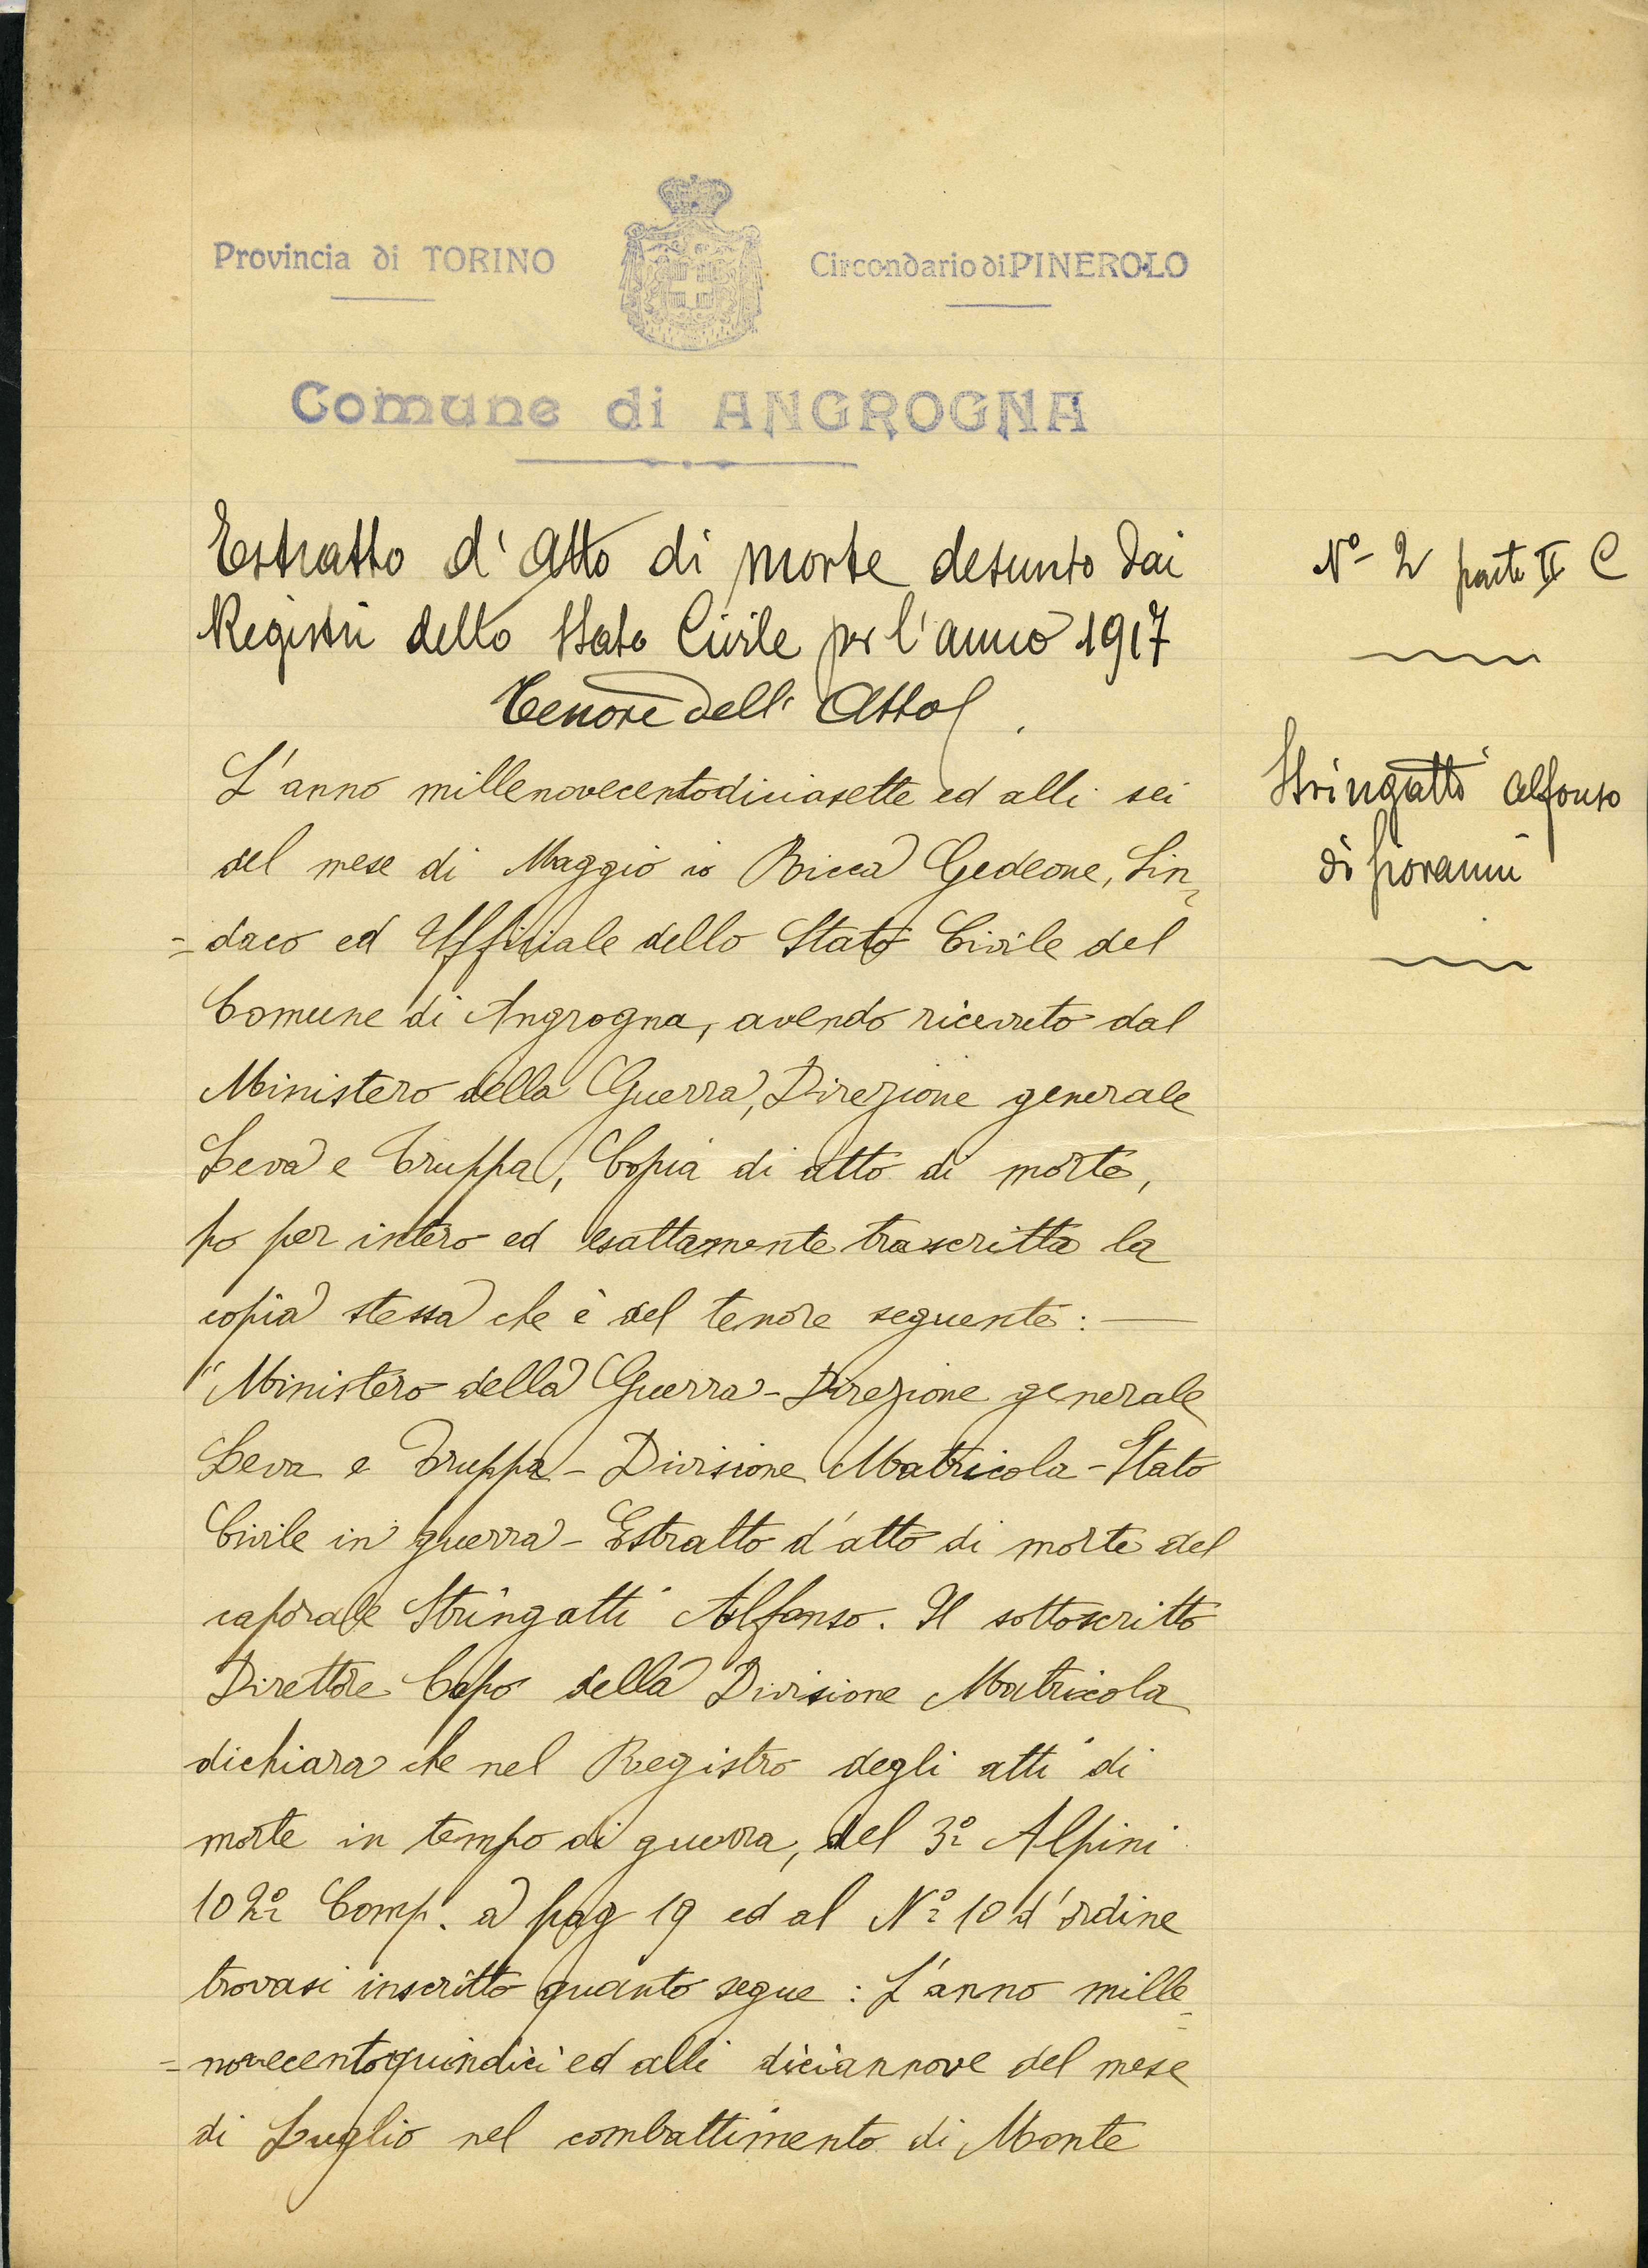 Provincia di TORINO
Circondario di PINEROLO
Comune di ANGROGNA
Estratto d'Atto di morte desunto dai
Registri dello Stato Civile per l'anno 1917
Tenore dell'Atto
N° 2 parte II C
Stringatti Alfonso
di Giovanni
L'anno millenovecentodiciasette ed alli sei
del mese di Maggio io Ricca Gedeone, Sin=
=daco ed Ufficiale dello Stato Civile del
Comune di Angrogna, avendo ricevuto dal
Ministero della Guerra, Direzione generale
Leva e Truppa, Copia di atto di morte,
ho per intero ed esattamente trascritta la
copia stessa che è del tenore seguente: —
"Ministero della Guerra - Direzione generale
Leva e Truppa - Divisione Matricola - Stato
Civile in guerra - Estratto d'atto di morte del
caporale Stringatti Alfonso. Il sottoscritto
Direttore Capo della Divisione Matricola
dichiara che nel Registro degli atti di
morte in tempo di guerra, del 3° Alpini
102° Comp. a pag 19 ed al N° 10 d'ordine
trovasi inscritto quanto segue: L'anno mille=
=novecentoquindici ed alli diciannove del mese
di Luglio nel combattimento di Monte